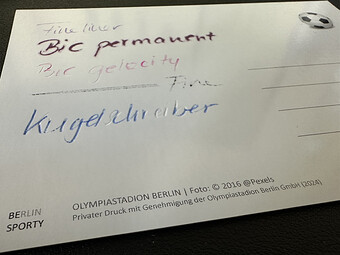 Fineliner
Bic permanent
Bic gelocity
Fine
Kugelschreiber
BERLIN
SPORTY
OLYMPIASTADION BERLIN | Foto: © 2016 @Pexels
Privater Druck mit Genehmigung der Olympiastadion Berlin GmbH (2024)